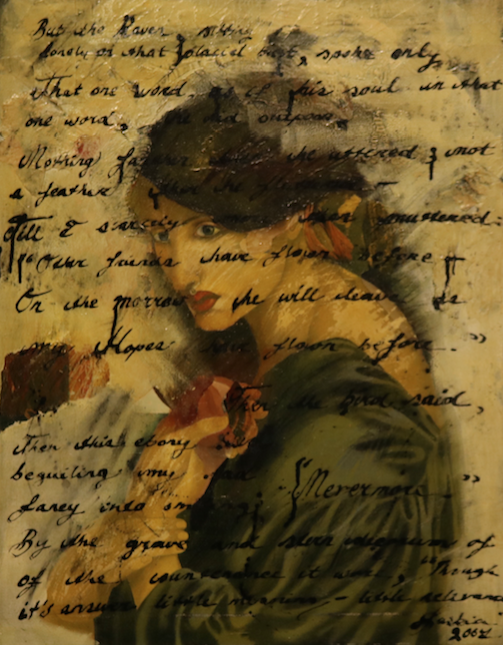 But the Raven, sitting
lonely on that placid bust, spoke only,
That one word, as if his soul in that
one word, he did outpour.
Nothing farther then he uttered; not
a feather then he
Till I scarcely more than muttered:
"Other friends have flown before –
On the morrow he will leave me
my Hopes have flown before."
Then the bird said,
Then this ebony bird
beguiling my sad "Nevermore"
fancy into smiling,
By the grave and stern decorum of
of the countenance it wore, "Though
its answer little meaning – little relevancy
2007